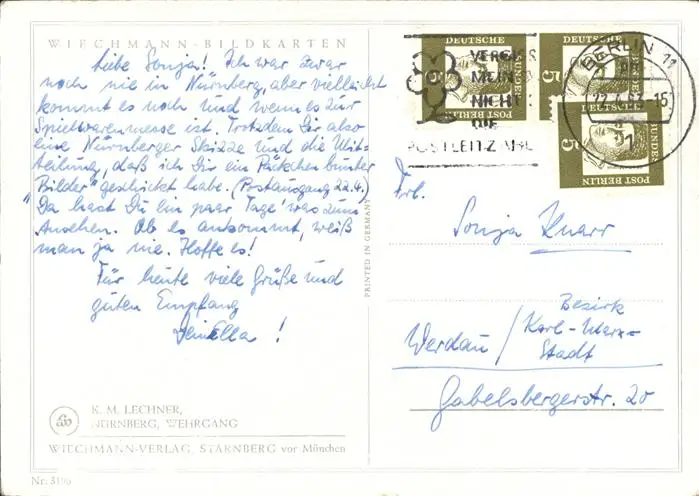 WIECHMANN-BILDKARTEN
Liebe Sonja! Ich war zwar
noch nie in Nürnberg, aber vielleicht
kommt es noch und wenn es zur
Spielwarenmesse ist. Trotzdem Dir also
eine Nürnberger Skizze und die Mit-
teilung, daß ich Dir ein Päckchen "bunter
Bilder" geschickt habe. (Postausgang 22.4.)
Da hast Du ein paar Tage was zum
Ansehen. Ob es ankommt, weiß
man ja nie. Hoffe es!
Für heute viele Grüße und
guten Empfang
Deine Ella!
K. M. LECHNER,
NÜRNBERG, WEHRGANG
WIECHMANN-VERLAG, STARNBERG vor München
PRINTED IN GERMANY
VERGISS
MEIN
NICHT
DIE
POSTLEITZAHL
BERLIN 11
DEUTSCHE
BUNDES
POST BERLIN
5
DEUTSCHE
BUNDES
5
DEUTSCHE
BUNDES
POST BERLIN
5
Frl.
Sonja Knarr
Werdau / Bezirk
Karl-Marx-
Stadt
Gabelsbergerstr. 20